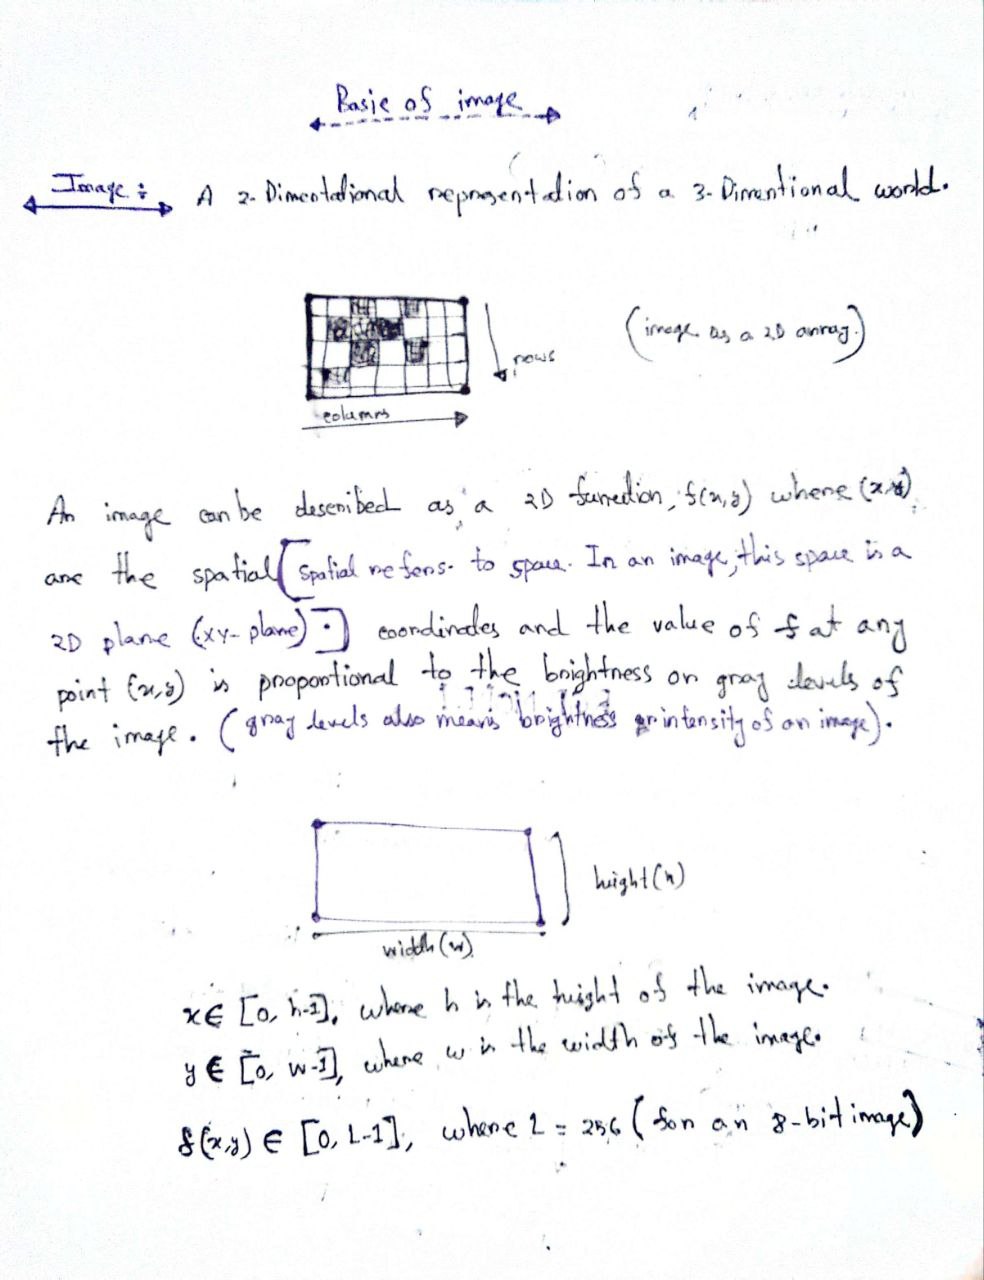 Basic of image
Image : A 2-Dimentational representation of a 3-Dimentional world.
(image as a 2D array.)
rows
columns
An image can be described as a 2D function, f(x,y) where (x,y)
are the spatial [spatial refers to space. In an image, this space is a
2D plane (xy-plane).] coordinates and the value of f at any
point (x,y) is proportional to the brightness or gray levels of
the image. (gray levels also means brightness or intensity of an image).
height(h)
width(w)
x ∈ [0, h-1], where h is the height of the image.
y ∈ [0, w-1], where w is the width of the image.
f(x,y) ∈ [0, L-1], where L = 256 (for an 8-bit image)